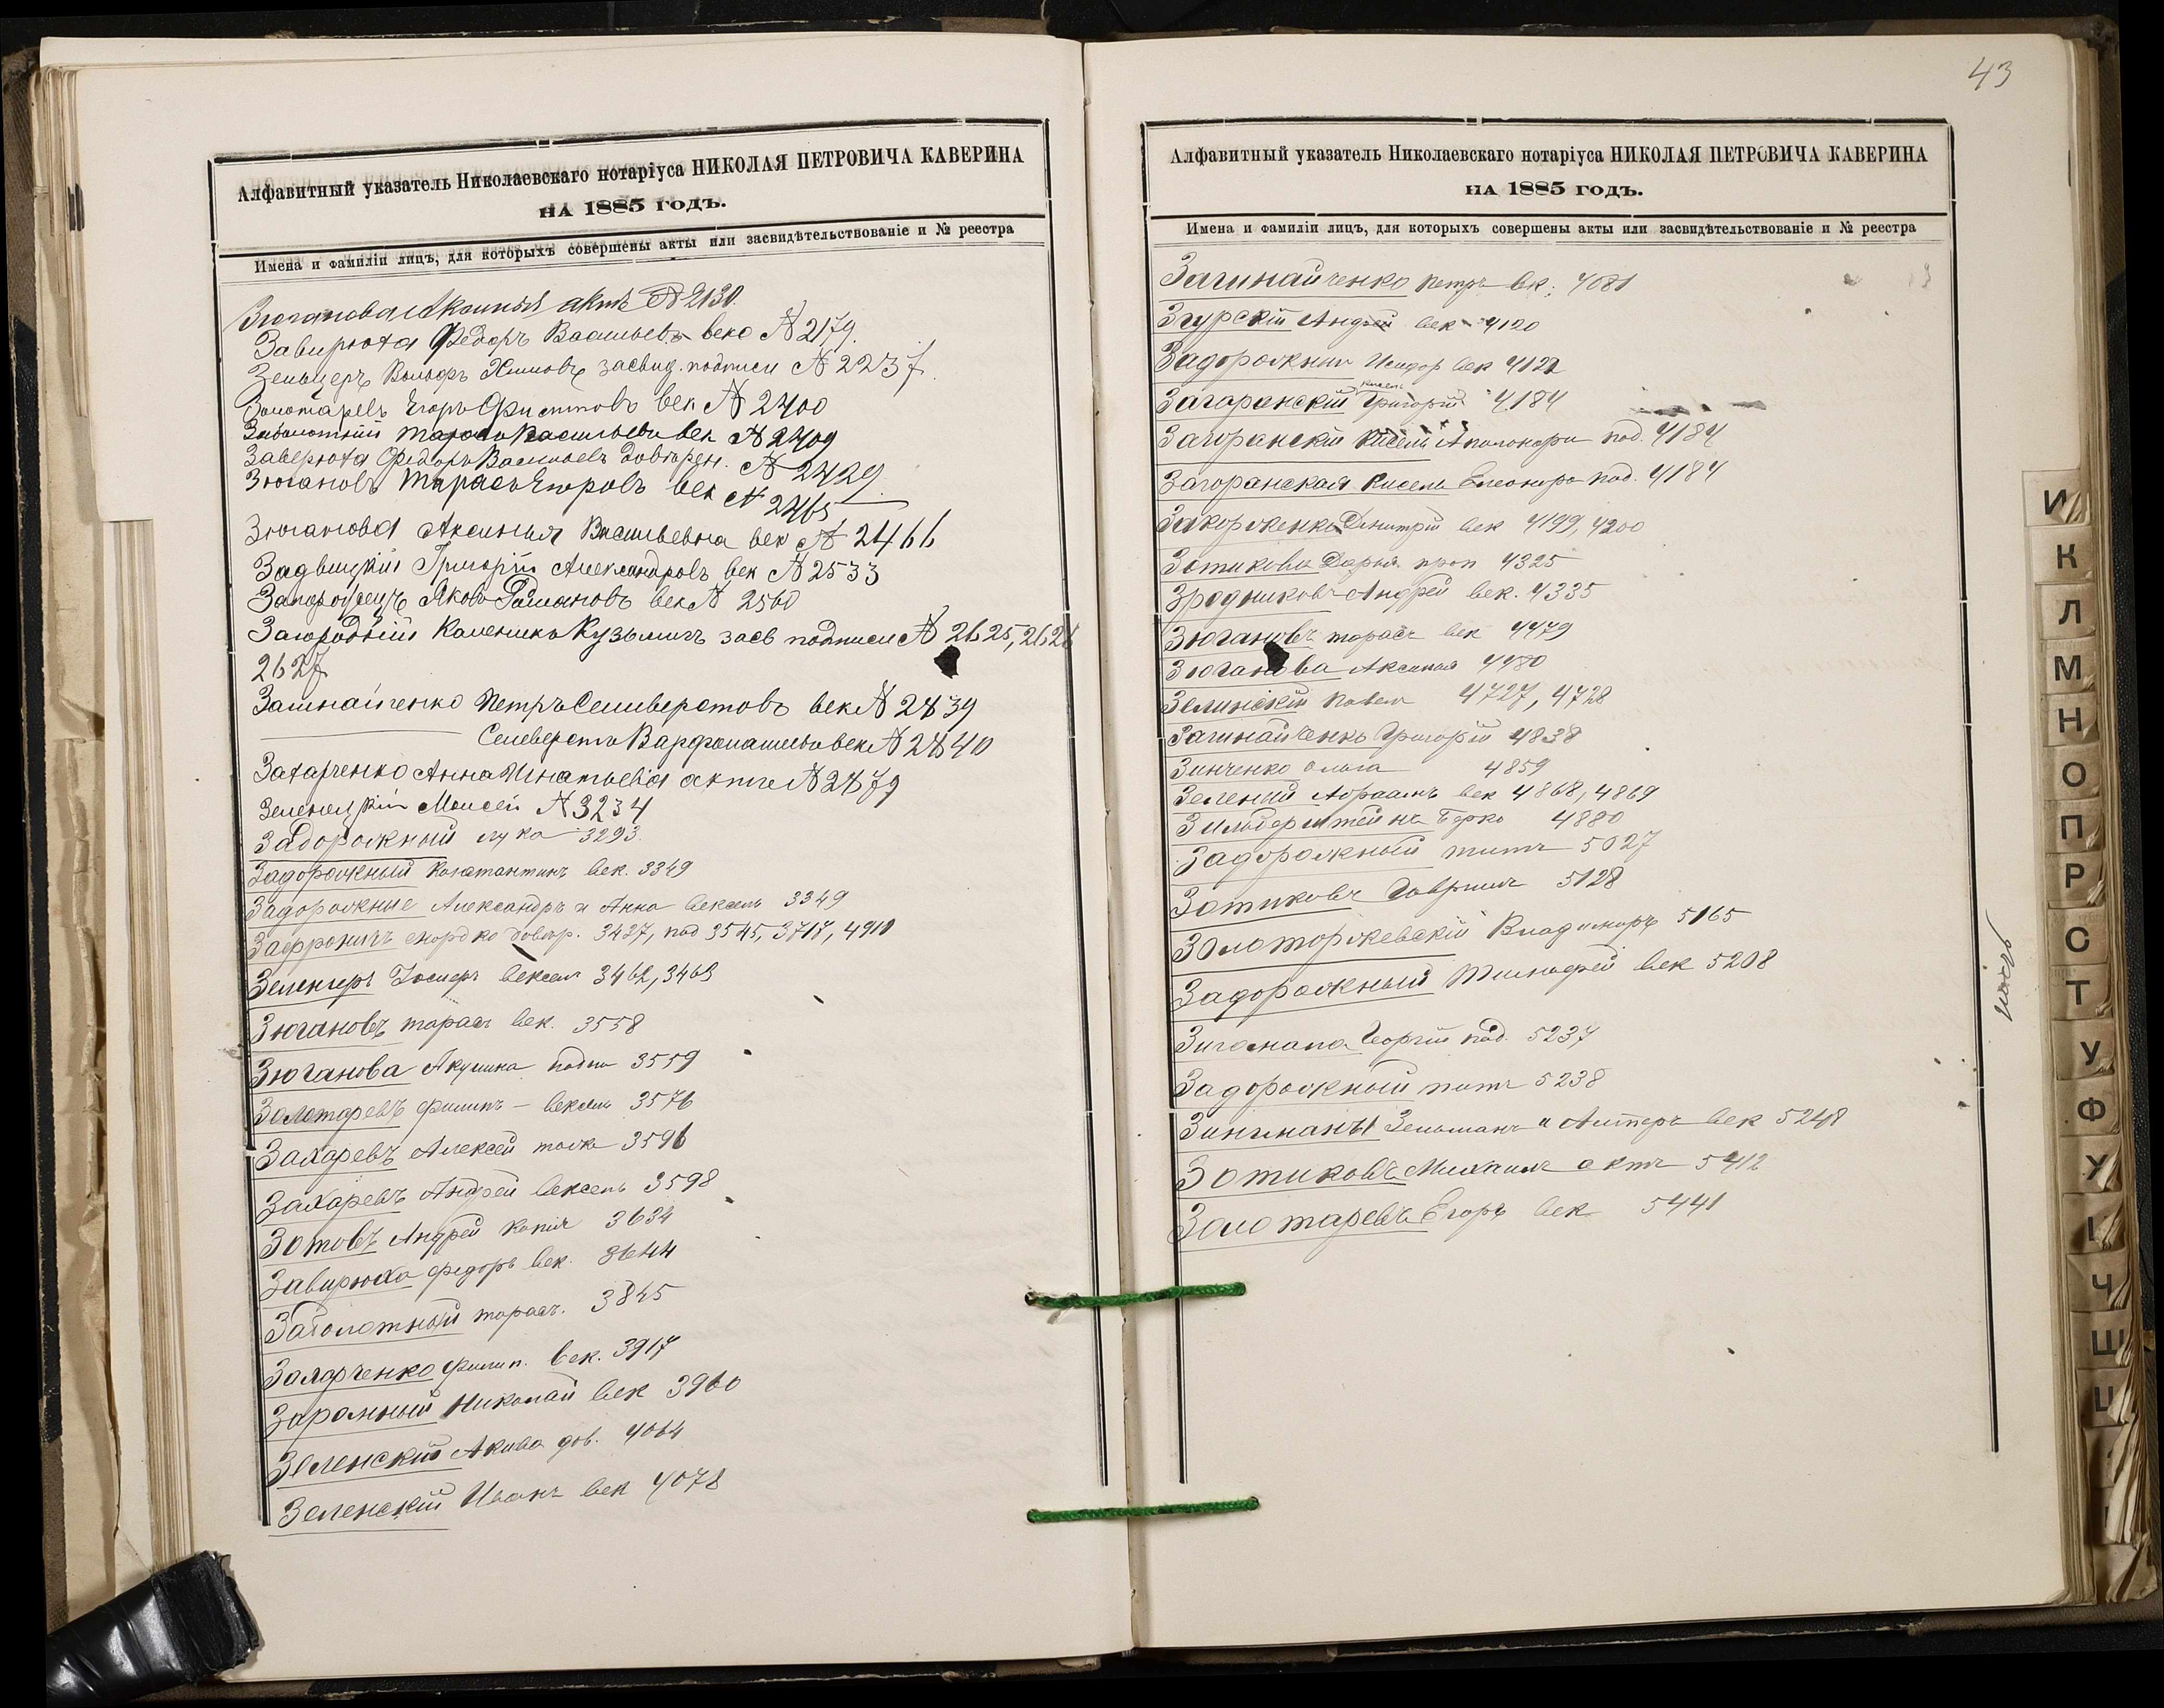 Алфавитный указатель Николаевскаго нотаріуса НИКОЛАЯ ПЕТРОВИЧА КАВЕРИНА
НА 1885 ГОДЪ.
Имена и фамиліи лицъ, для которыхъ совершены акты или засвидѣтельствованіе и № реестра
Зюганова актъ № 2130.
Завирюха Федоръ Васильевъ век № 2179.
Зельцеръ Вольфъ засвид. подписи № 2237.
Золотаревъ Егоръ Филипповъ век № 2400
Заболотній Тарасъ Васильевъ век № 2409
Заверюха Федоръ Васильевъ довѣрен. № 2429
Зюгановъ Тарасъ Егоровъ век № 2465
Зюганова Аксинья Васильевна век № 2466
Григорій Александровъ век № 2533
Запорожецъ Яковъ Романовъ век № 2560
Загородній Каленикъ Кузьмичъ засв подписи № 2625, 2626
2627
Загинайченко Петръ Селиверстовъ век № 2839
Селеверстъ век № 2840
Захарченко Анна Игнатьева акт № 2879
Зеленецкій Моисей № 3234
Задорожный лука 3293.
Задорожный Константинъ век. 3349
Задорожные Александръ и Анна вексель 3349
мордко довѣр. 3427, под 3545, 3717, 4911
вексел 3462, 3463
Зюгановъ тарасъ век. 3558
Зюганова Акулина подпи 3559
Золотаревъ филипъ – вексель 3576
Захаревъ Алексей 3596
Захаревъ Андрей вексель 3598
Зотовъ Андрей копія 3634
Завирюха федоръ век. 3644
Заболотный тарасъ. 3845
Захарченко филип. век. 3917
Николай век 3960
Зеленскій Акива дов. 4064
Зеленскій Иванъ век 4078
43
Алфавитный указатель Николаевскаго нотаріуса НИКОЛАЯ ПЕТРОВИЧА КАВЕРИНА
НА 1885 ГОДЪ.
Имена и фамиліи лицъ, для которыхъ совершены акты или засвидѣтельствованіе и № реестра
Загинайченко петръ век. 4081
Згурскій Андрей век 4120
Задорожный Исидор век 4122
Загаранскій кисель Григорій 4184
Загоранскій кисель под. 4184
Загоранская кисель Елеонора под. 4184
Дмитрій век 4199, 4200
Зотикова Дарья проп 4325
Андрей век. 4335
Зюгановъ тарасъ век 4479
Зюганова Аксинья 4480
Зелинскій Павелъ 4727, 4728
Загинайченко Григорій 4838
Зинченко ольга 4859
Зеленый Абрамъ век 4868, 4869
Зильберштейнъ Берко 4880
Задорожный титъ 5027
Зотиковъ Гавриилъ 5128
Золоторжевскій Владимиръ 5165
Задорожный Тимофей век 5208
Георгій под. 5237
Задорожный титъ 5238
Зингманы Зельманъ и век 5248
Зотиковъ Михаилъ актъ 5412
Золотаревъ Егоръ век 5441
И
К
Л
М
Н
О
П
Р
С
Т
У
Ф
Ч
Ш